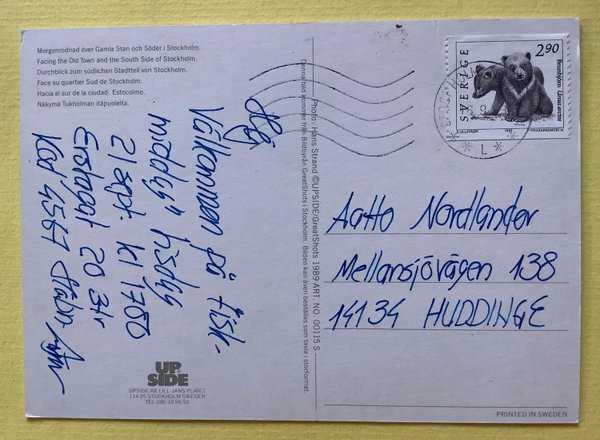 Morgonrodnad över Gamla Stan och Söder i Stockholm.
Facing the Old Town and the South Side of Stockholm.
Durchblick zum südlichen Stadtteil von Stockholm.
Face au quartier Sud de Stockholm.
Hacia el sur de la ciudad, Estocolmo.
Näkymä Tukholman itäpuolelta.
Hej
Välkommen på fisk-
middag" lördag
21 sept. kl 1700
Erstagat 20 3tr
Kod 4567
UP
SIDE
UPSIDE AB LILL-JANS PLAN 2
114 25 STOCKHOLM SWEDEN
TEL (08) 10 96 50
Photo: Hans Strand ©UPSIDE/GreatShots 1989 ART. NO. 00115 S
Denna bild kommer från Bildbyrån GreatShots i Stockholm. Bilden kan även beställas som tavla i storformat.
SVERIGE
2.90
Brunbjörn Ursus arctos
L
Aatto Nordlander
Mellansjövägen 138
14134 HUDDINGE
PRINTED IN SWEDEN